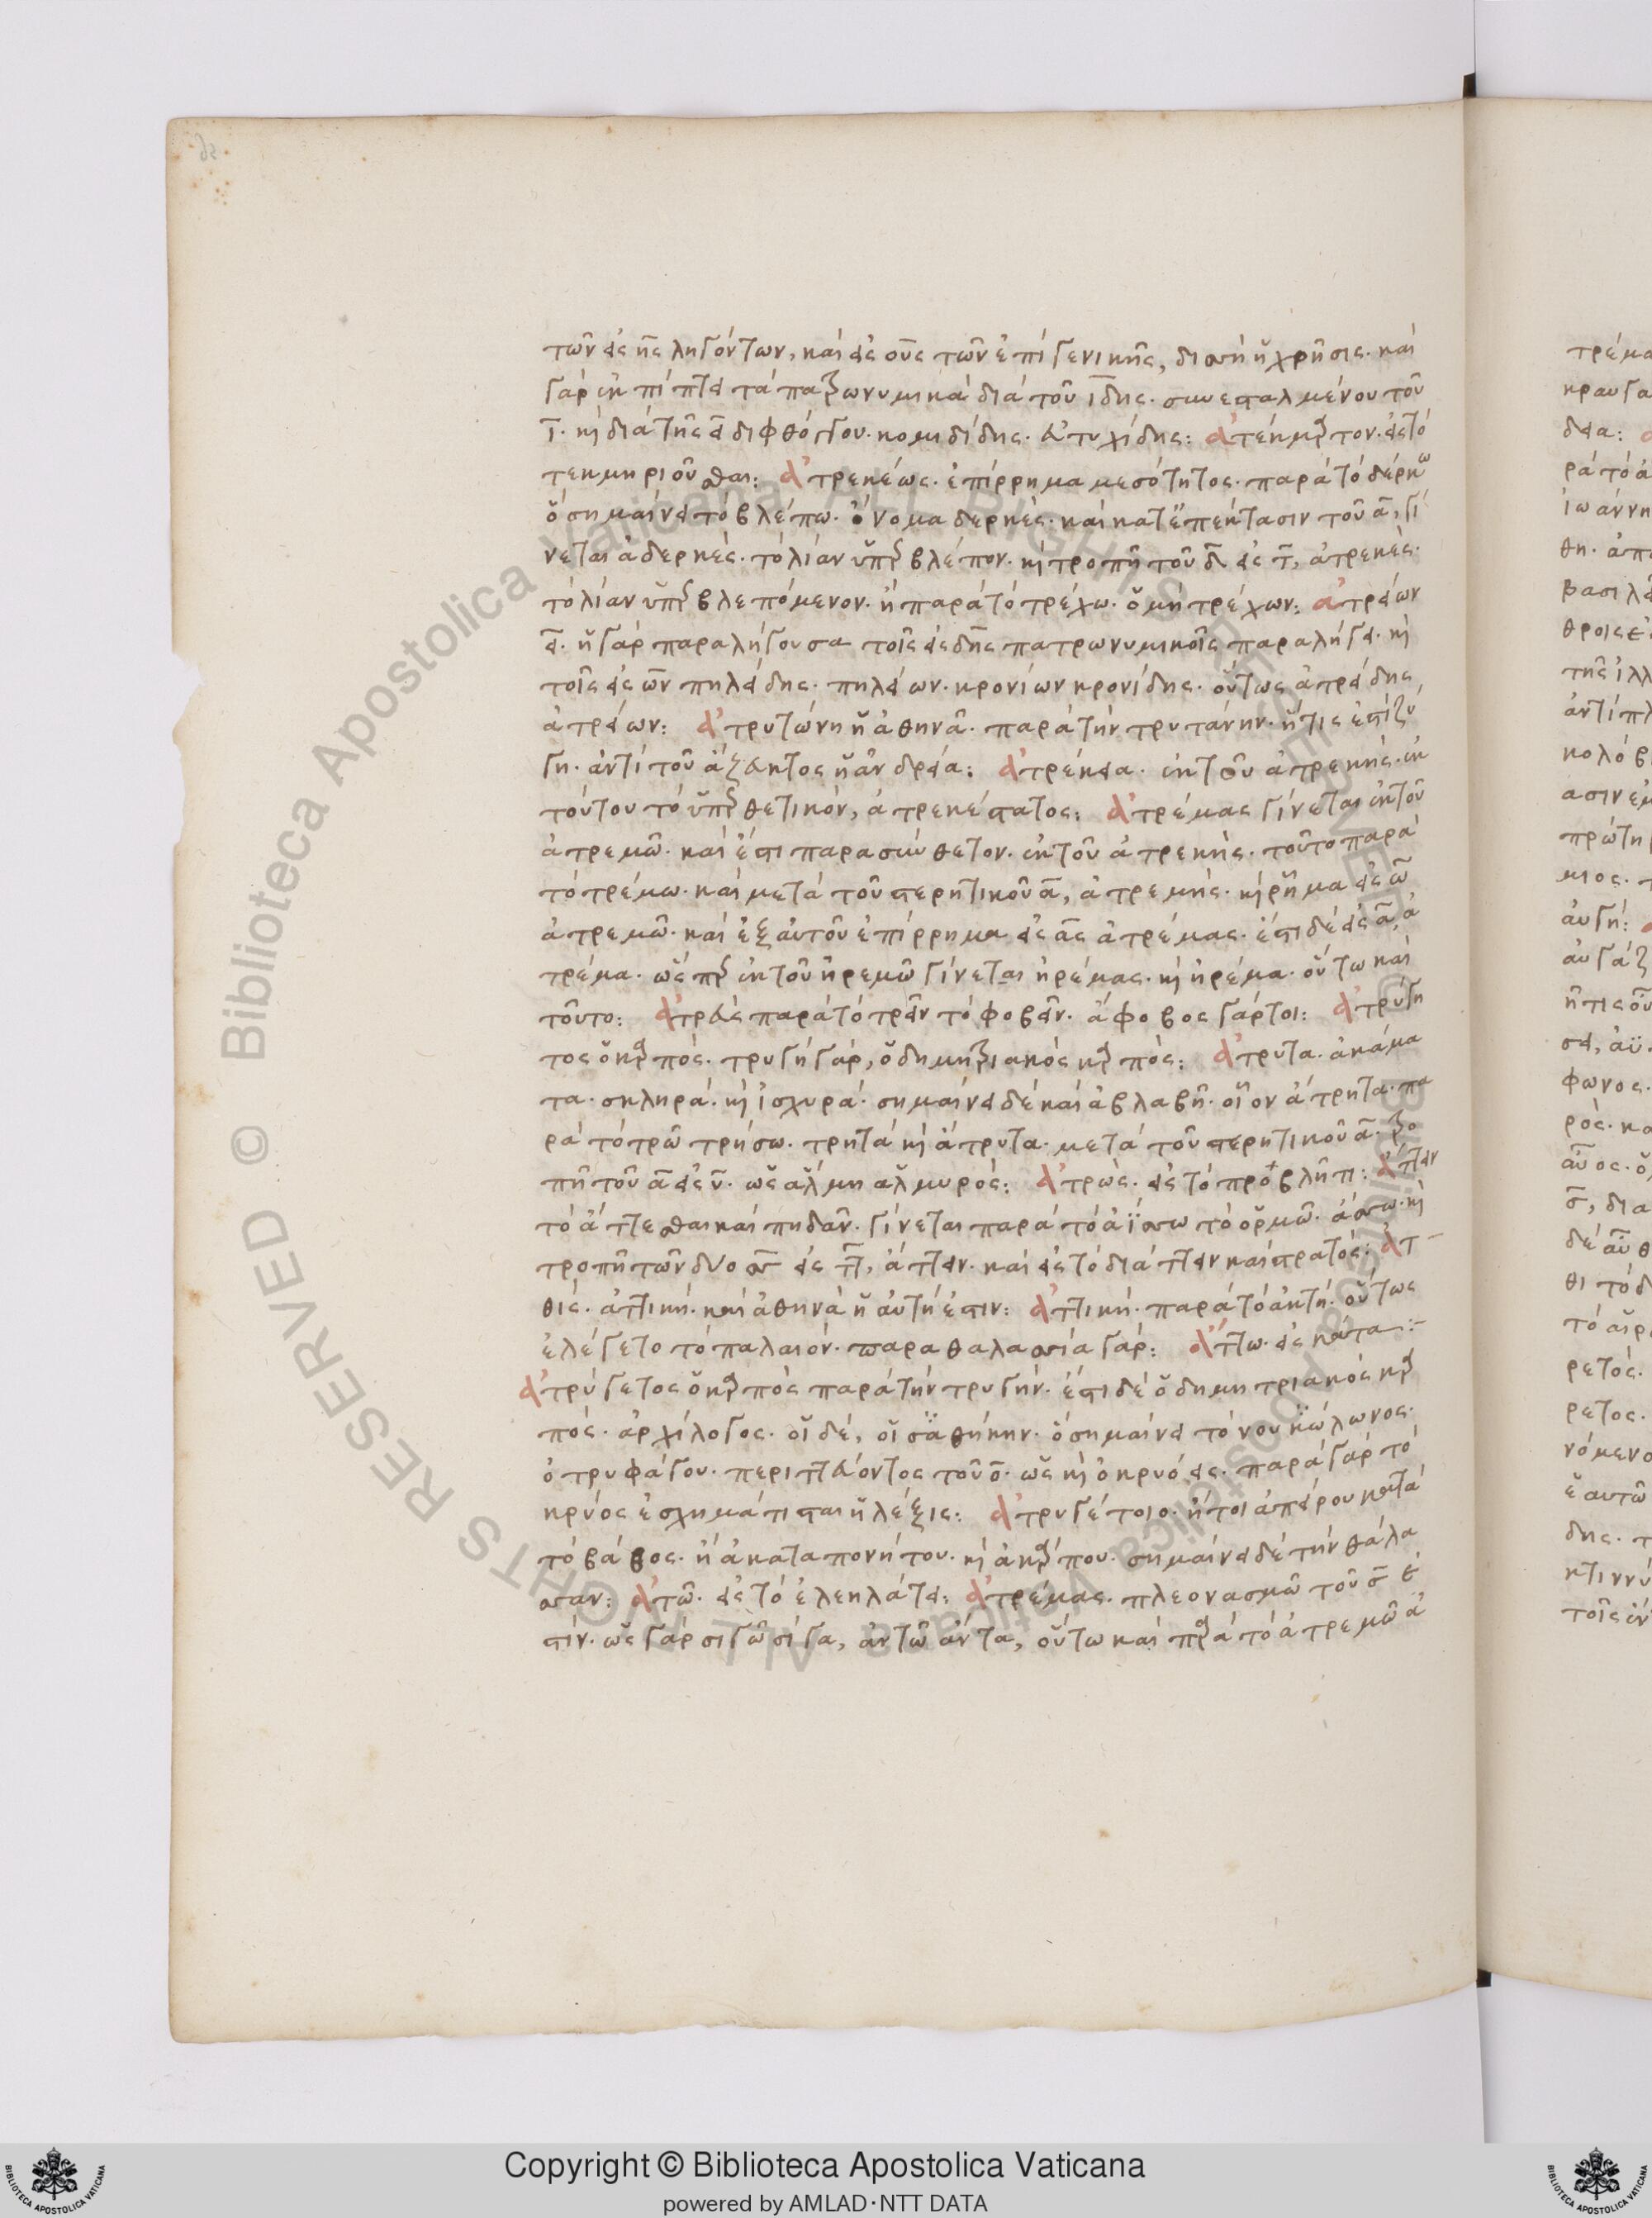 των εἰς ης ληγόντων, καὶ εἰς ους των ἐπὶ γενικῆς, δισσὴ ἡ χρῆσις· καὶ
γὰρ ἐκπίπτει τὰ πατρωνυμικὰ διὰ τοῦ ιδης· συνεσταλμένου τοῦ
ι· κ διὰ τῆς ει διφθόγγου· κομιδίδης· εὐτυχίδης: ἀτέκμαρτον· εἰς τὸ
τεκμηριοῦσθαι: ἀτρεκέως· ἐπίρρημα μεσότητος· παρὰ τὸ δέρκω
ὃ σημαίνει τὸ βλέπω· ὄνομα δερκὲς· καὶ κατ' ἐπέκτασιν τοῦ α, γί
νεται ἀδερκὲς· τὸ λίαν ὑπερβλέπον· κ τροπῇ τοῦ δ εἰς τ, ἀτρεκὲς·
τὸ λίαν ὑπερβλεπόμενον· ἢ παρὰ τὸ τρέχω· ὁ μὴ τρέχων: ἀτρείων
ει· ἡ γὰρ παραλήγουσα τοῖς εἰς δης πατρωνυμικοῖς παραλήγει· κ
τοῖς εἰς ων πηλείδης· πηλείων· κρονίων κρονίδης· οὕτως ἀτρείδης,
ἀτρείων: ἀτρυτώνη ἡ ἀθηνᾶ· παρὰ τὴν τρυτάνην· ἥτις ἐστὶ ζυ
γη· ἀντὶ τοῦ ἀζευκτος ἡ ἀνδρεία: ἀτρέκεια· ἐκ τοῦ ἀτρεκής· ἐκ
τούτου τὸ ὑπερθετικόν, ἀτρεκέστατος: ἀτρέμας γίνεται ἐκ τοῦ
ἀτρεμῶ· καὶ ἔστι παρασύνθετον· ἐκ τοῦ ἀτρεκής· τοῦτο παρὰ
τὸ τρέμω· καὶ μετὰ τοῦ στερητικοῦ α, ἀτρεμής· κ ρῆμα εἰς ω
ἀτρεμῶ· καὶ ἐξ αὐτοῦ ἐπίρρημα εἰς ας ἀτρέμας· ἔστι δὲ εἰς α, ἀ
τρέμα· ὥσπερ ἐκ τοῦ ἠρεμῶ γίνεται ἠρέμας· κ ἠρέμα· οὕτω καὶ
τοῦτο: ἀτρεὺς παρὰ τὸ τρεῖν τὸ φοβεῖν· ἄφοβος γάρ τοι: ἀτρύγη
τος ὁ καρπὸς· τρυγὴ γάρ, ὁ δημητριακὸς καρπὸς: ἀτρυτα· ἀκάμα
τα· σκληρά· κ ἰσχυρά· σημαίνει δὲ καὶ ἀβλαβῆ· οἷον ἄτρητα· πα
ρὰ τὸ τρῶ τρήσω· τρητά κ ἄτρυτα· μετὰ τοῦ στερητικοῦ α· τρο
πῇ τοῦ α εἰς υ· ὡς ἄλμη ἁλμυρός: ἀτρὼς· εἰς τὸ προβλῆτι: ἄττειν
τὸ ἅττεσθαι καὶ πηδᾶν· γίνεται παρὰ τὸ ἀΐσσω τὸ ὁρμῶ· ἄσσω· κ
τροπῇ των δυο σσ εἰς ττ, ἄττειν· καὶ εἰς τὸ διάττειν καὶ στρατός: ἀτ
θὶς· ἀττικὴ· καὶ ἀθηνᾶ ἡ αὐτή ἐστιν: ἀττικὴ· παρὰ τὸ ἀκτή· οὕτως
ἐλέγετο τὸ παλαιόν· παραθαλασσία γάρ: ἄττω· εἰς κάτα:
ἀτρύγετος ὁ καρπὸς παρὰ τὴν τρυγήν· ἔστι δὲ ὁ δημητριακὸς καρ
πὸς· ἀρχίλοχος· οἱ δέ, οἱ σάθηκην· ὃ σημαίνει τὸν ου κώλωνος·
ὀτρυφάγου· περιττεύοντος τοῦ ο· ὡς κ ὀκρυόεις· παρὰ γὰρ τὸ
κρύος ἐσχημάτισται ἡ λέξις: ἀτρυγέτοιο· ἤτοι ἀπείρου κατὰ
τὸ βάθος· ἢ ἀκαταπονήτου· κ ἀκάρπου· σημαίνει δὲ τὴν θάλα
σσαν: ἀτῶ· εἰς τὸ ἐλεηλάτει: ἀτρέμας· πλεονασμῶ τοῦ σ ἐ
στιν· ὡς γὰρ σιγῶ σίγα, ἀντῶ ἄντα, οὕτω καὶ παρὰ τὸ ἀτρεμῶ ἀ
Copyright © Biblioteca Apostolica Vaticana
powered by AMLAD·NTT DATA